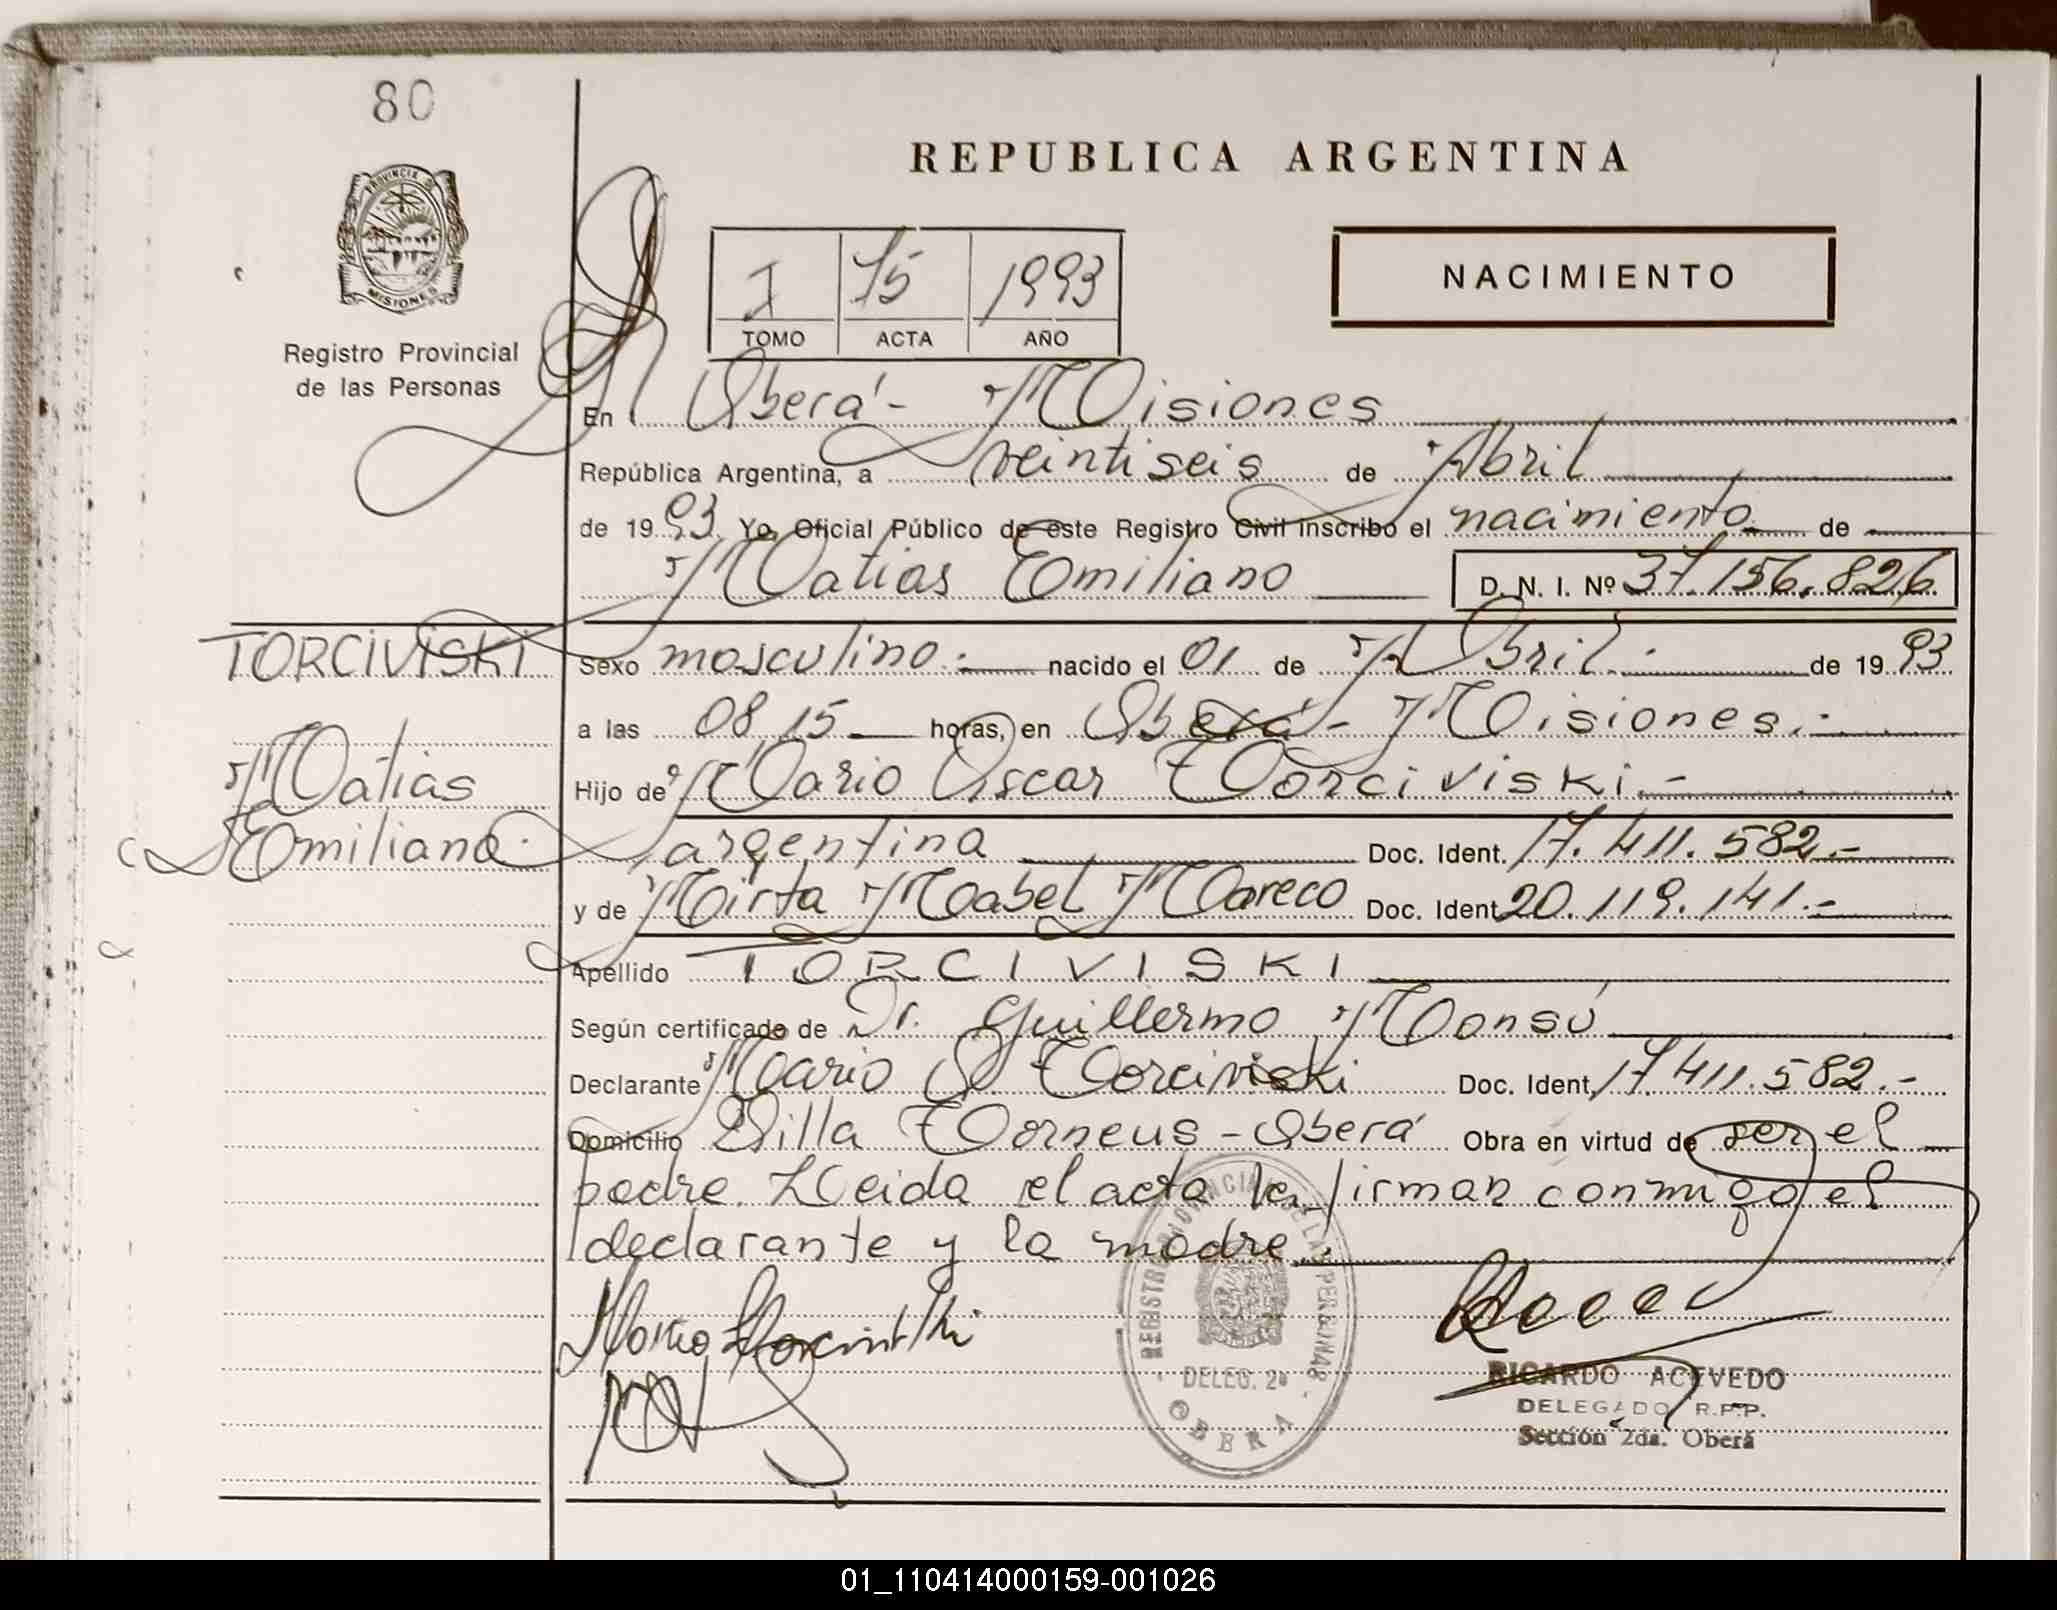 80
REPUBLICA ARGENTINA
PROVINCIA DE
MISIONES
I 75 1993
TOMO ACTA AÑO
NACIMIENTO
Registro Provincial
de las Personas
En Oberá - Misiones
República Argentina, a veintiseis de Abril
de 1993 Yo, Oficial Público de este Registro Civil inscribo el nacimiento de
Matias Emiliano D. N. I. Nº 37.156.826
TORCIVISKI
Matias
Emiliano.
Sexo masculino.- nacido el 01 de Abril.- de 1993
a las 08 15 horas, en Oberá - Misiones.-
Hijo de Mario Oscar Torciviski.-
argentina Doc. Ident. 17.411.582.-
y de Mirta Mabel Mareco Doc. Ident. 20.119.141.-
Apellido TORCIVISKI
Según certificado de Dr. Guillermo Monsú
Declarante Mario O. Torciviski Doc. Ident. 17.411.582.-
Domicilio Villa Torneus - Oberá Obra en virtud de ser el
padre. Leida el acta la firman conmigo el
declarante y la madre.-
REGISTRO PROVINCIAL DE LAS PERSONAS
DELEG. 2ª
OBERA
RICARDO ACEVEDO
DELEGADO R.P.P.
Sección 2da. Oberá
01_110414000159-001026